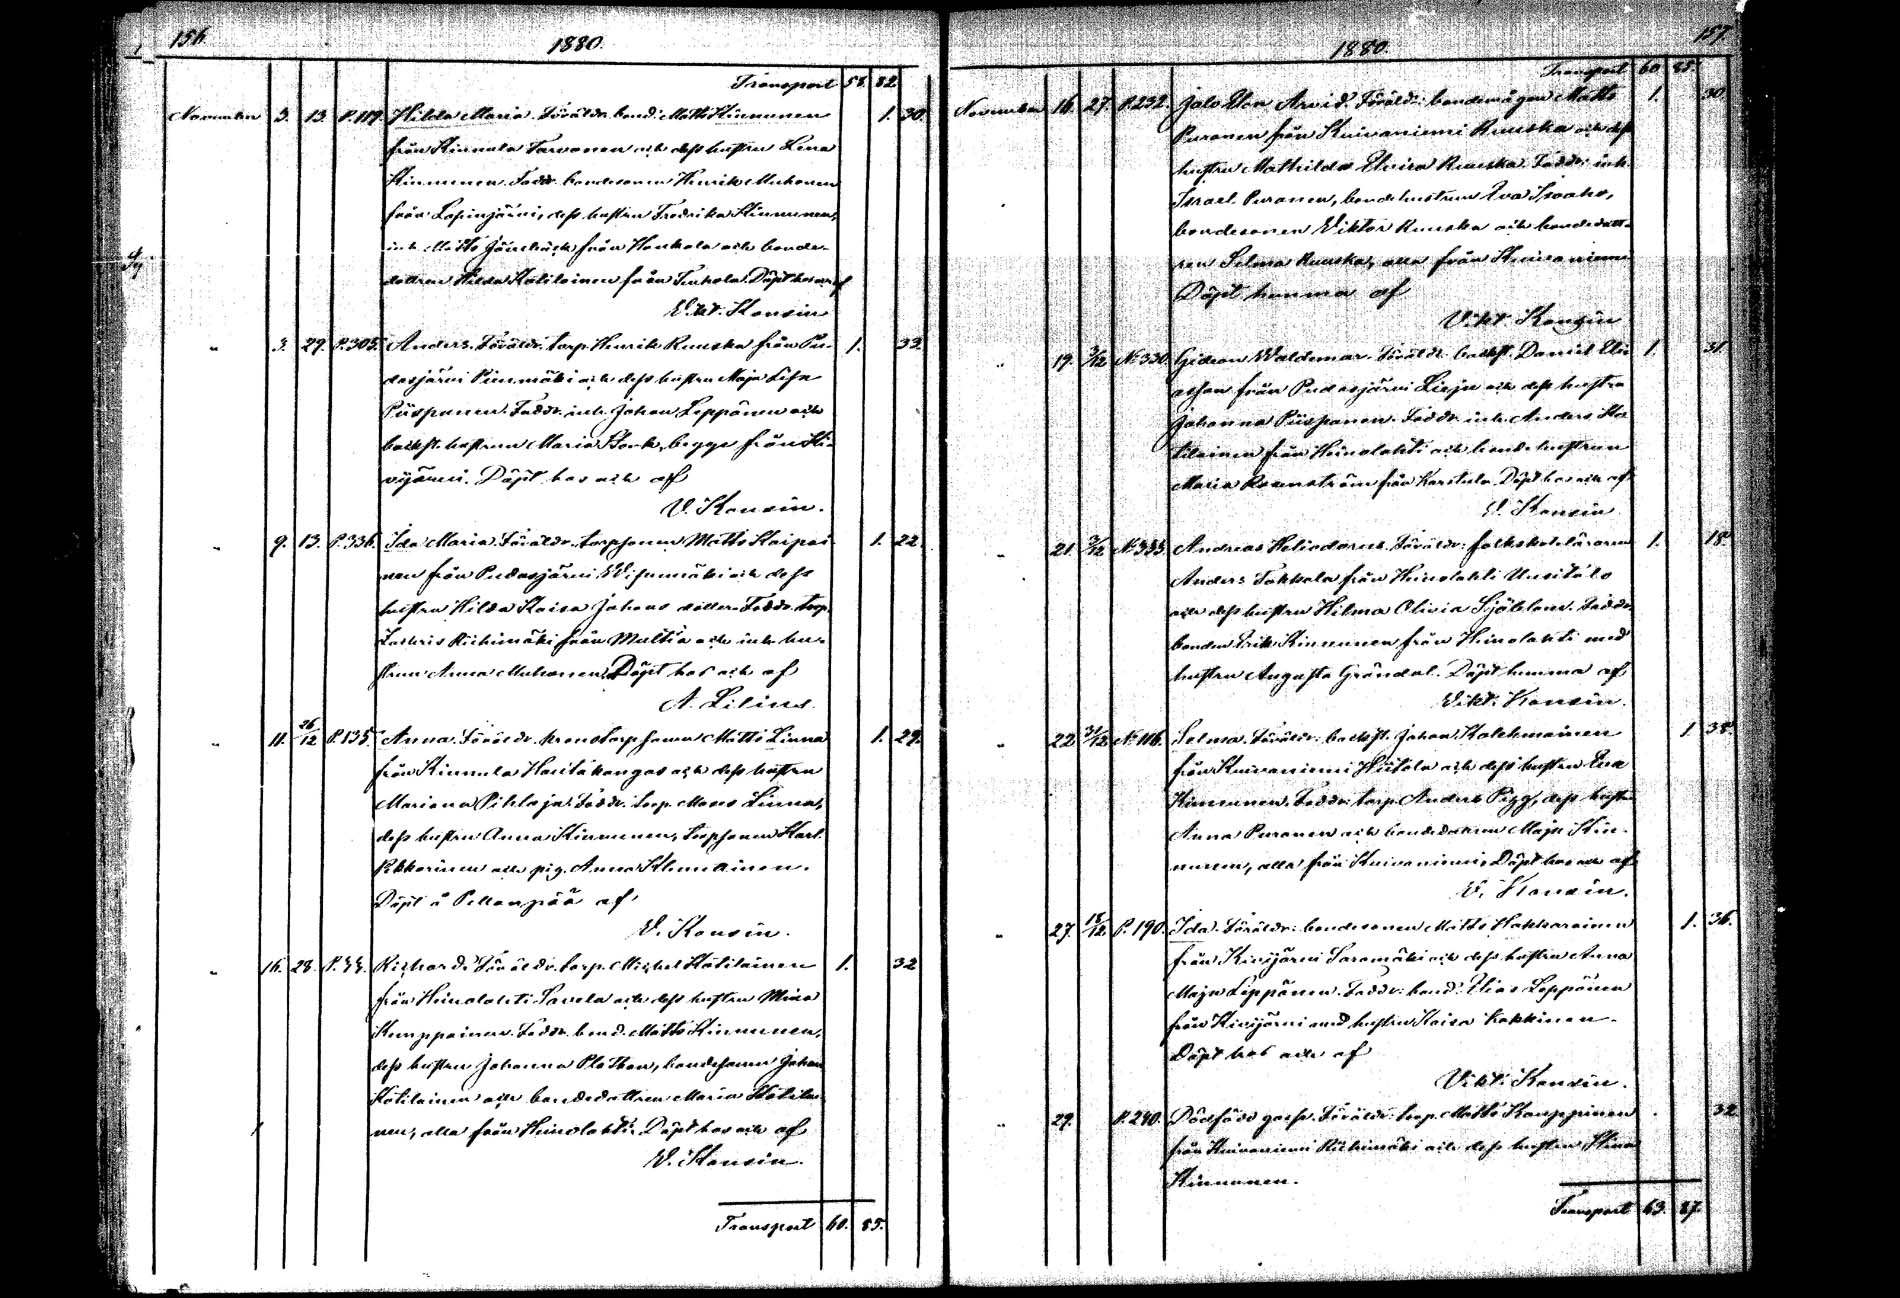 156.
1880.
Transport 58. 82.
November 3. 13. P.119. Hilda Maria. Föräldr. bond. Matts Kinnunen 1. 30.
från Kinnula Tarvonen och dess hustru Lena
Kinnunen. Faddr. bondesonen Henrik Muhonen
från Lapinjärvi, dess hustru Fredrika Kinnunen,
inh. Matts från Honkola och bonde-
dottren Hilda Kotilainen från Döpt hos och af
Vikt. Konsin
" 3. 29. P.305. Anders. Föräldr. torp. Henrik Ruuska från Pu- 1. 33.
dasjärvi Pienmäki och dess hustru Maja Lisa
Piispanen. Faddr. inh. Johan Leppänen och
backst. hustrun Maria Stork, begge från Ki-
vijärvi. Döpt hos och af
V. Konsin.
" 9. 13. P.336. Ida Maria. Föräldr. torpsonen Matts Kaipai- 1. 22.
nen från Pudasjärvi och dess
hustru Hilda Kaisa Johans dotter. Faddr. torp.
Zachris Riihimäki från Multia och inh. hu-
strun Anna Muhonen. Döpt hos och af
A. Lilius.
" 11. 26/12 P.135. Anna. Föräldr. kronotorpsonen Matts Linna 1. 29.
från Kinnula Hautakangas och dess hustru
Mariana Pihlaja. Faddr. torp. Moses Linna,
dess hustru Anna Kinnunen, torpsonen Karl
Pekkarinen och pig. Anna Klemainen.
Döpt å Pellonpää af
V. Konsin.
" 16. 28. P. Richard. Föräldr. torp. Michel Kotilainen 1. 32
från Heinolahti Savela och dess hustru Mina
Kemppainen. Faddr. bond. Matts Kinnunen,
dess hustru Johanna Platkon, bondesonen Johan
Kotilainen och bondedottren Maria Kotilai-
nen, alla från Heinolahti. Döpt hos och af
V. Konsin.
Transport 60. 85.
157.
1880.
Transport 60. 85.
November 16. 27. P.232. Jalo Arvid. Föräldr. bondemågen Matts 1. 30.
Puranen från Kuivaniemi Ruuska och dess
hustru Mathilda Elvira Ruuska. Faddr. inh.
Israel Puranen, bondehustrun Eva Isoaho,
bondesonen Viktor Ruuska och bondedott-
ren Selma Ruuska, alla från Kuivaniemi.
Döpt hemma af
Vikt. Konsin
" 19. 3/12 N:330. Gideon Waldemar. Föräldr. backst. Daniel Eli- 1. 31.
asson från Pudasjärvi och dess hustru
Johanna Piispanen. Faddr. inh. Anders Ko-
tilainen från Heinolahti och bondehustrun
Maria Rosenström från Karstula. Döpt hos och af
V. Konsin
" 21. 3/12 N:333. Andreas Heliodorus. Föräldr. folkskoleläraren 1. 18.
Anders Takkala från Heinolahti Uusitalo
och dess hustru Hilma Olivia Sjöblom. Faddr.
bonden Erik Kinnunen från Heinolahti med
hustru Augusta Gröndal. Döpt hemma af
Vikt. Konsin.
" 22. 31/12 N:116. Selma. Föräldr. backst. Johan Kolehmainen 1. 38.
från Kuivaniemi Hiitola och dess hustru Eva
Kinnunen. Faddr. torp. Anders Pigg, dess hustru
Anna Puranen och bondedottren Maja Kin-
nunen, alla från Kuivaniemi. Döpt hos och af
V. Konsin.
" 27. 18/12 P.190. Ida. Föräldr. bondesonen Matts Hakkarainen 1. 36.
från Kivijärvi Saramäki och dess hustru Anna
Maja Leppänen. Faddr. bond. Elias Leppänen
från Kivijärvi med hustru Kaisa Kokkinen.
Döpt hos och af
Vikt. Konsin.
" 29. P.240. Dödfödd gosse. Föräldr. torp. Matts Kauppinen . 32.
från Kuivaniemi Riihimäki och dess hustru Stina
Kinnunen.
Transport 63. 87.